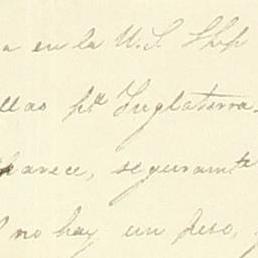 a en la U.S. Shp
llas pª Inglaterra
parece, seguramte
no hay un peso,